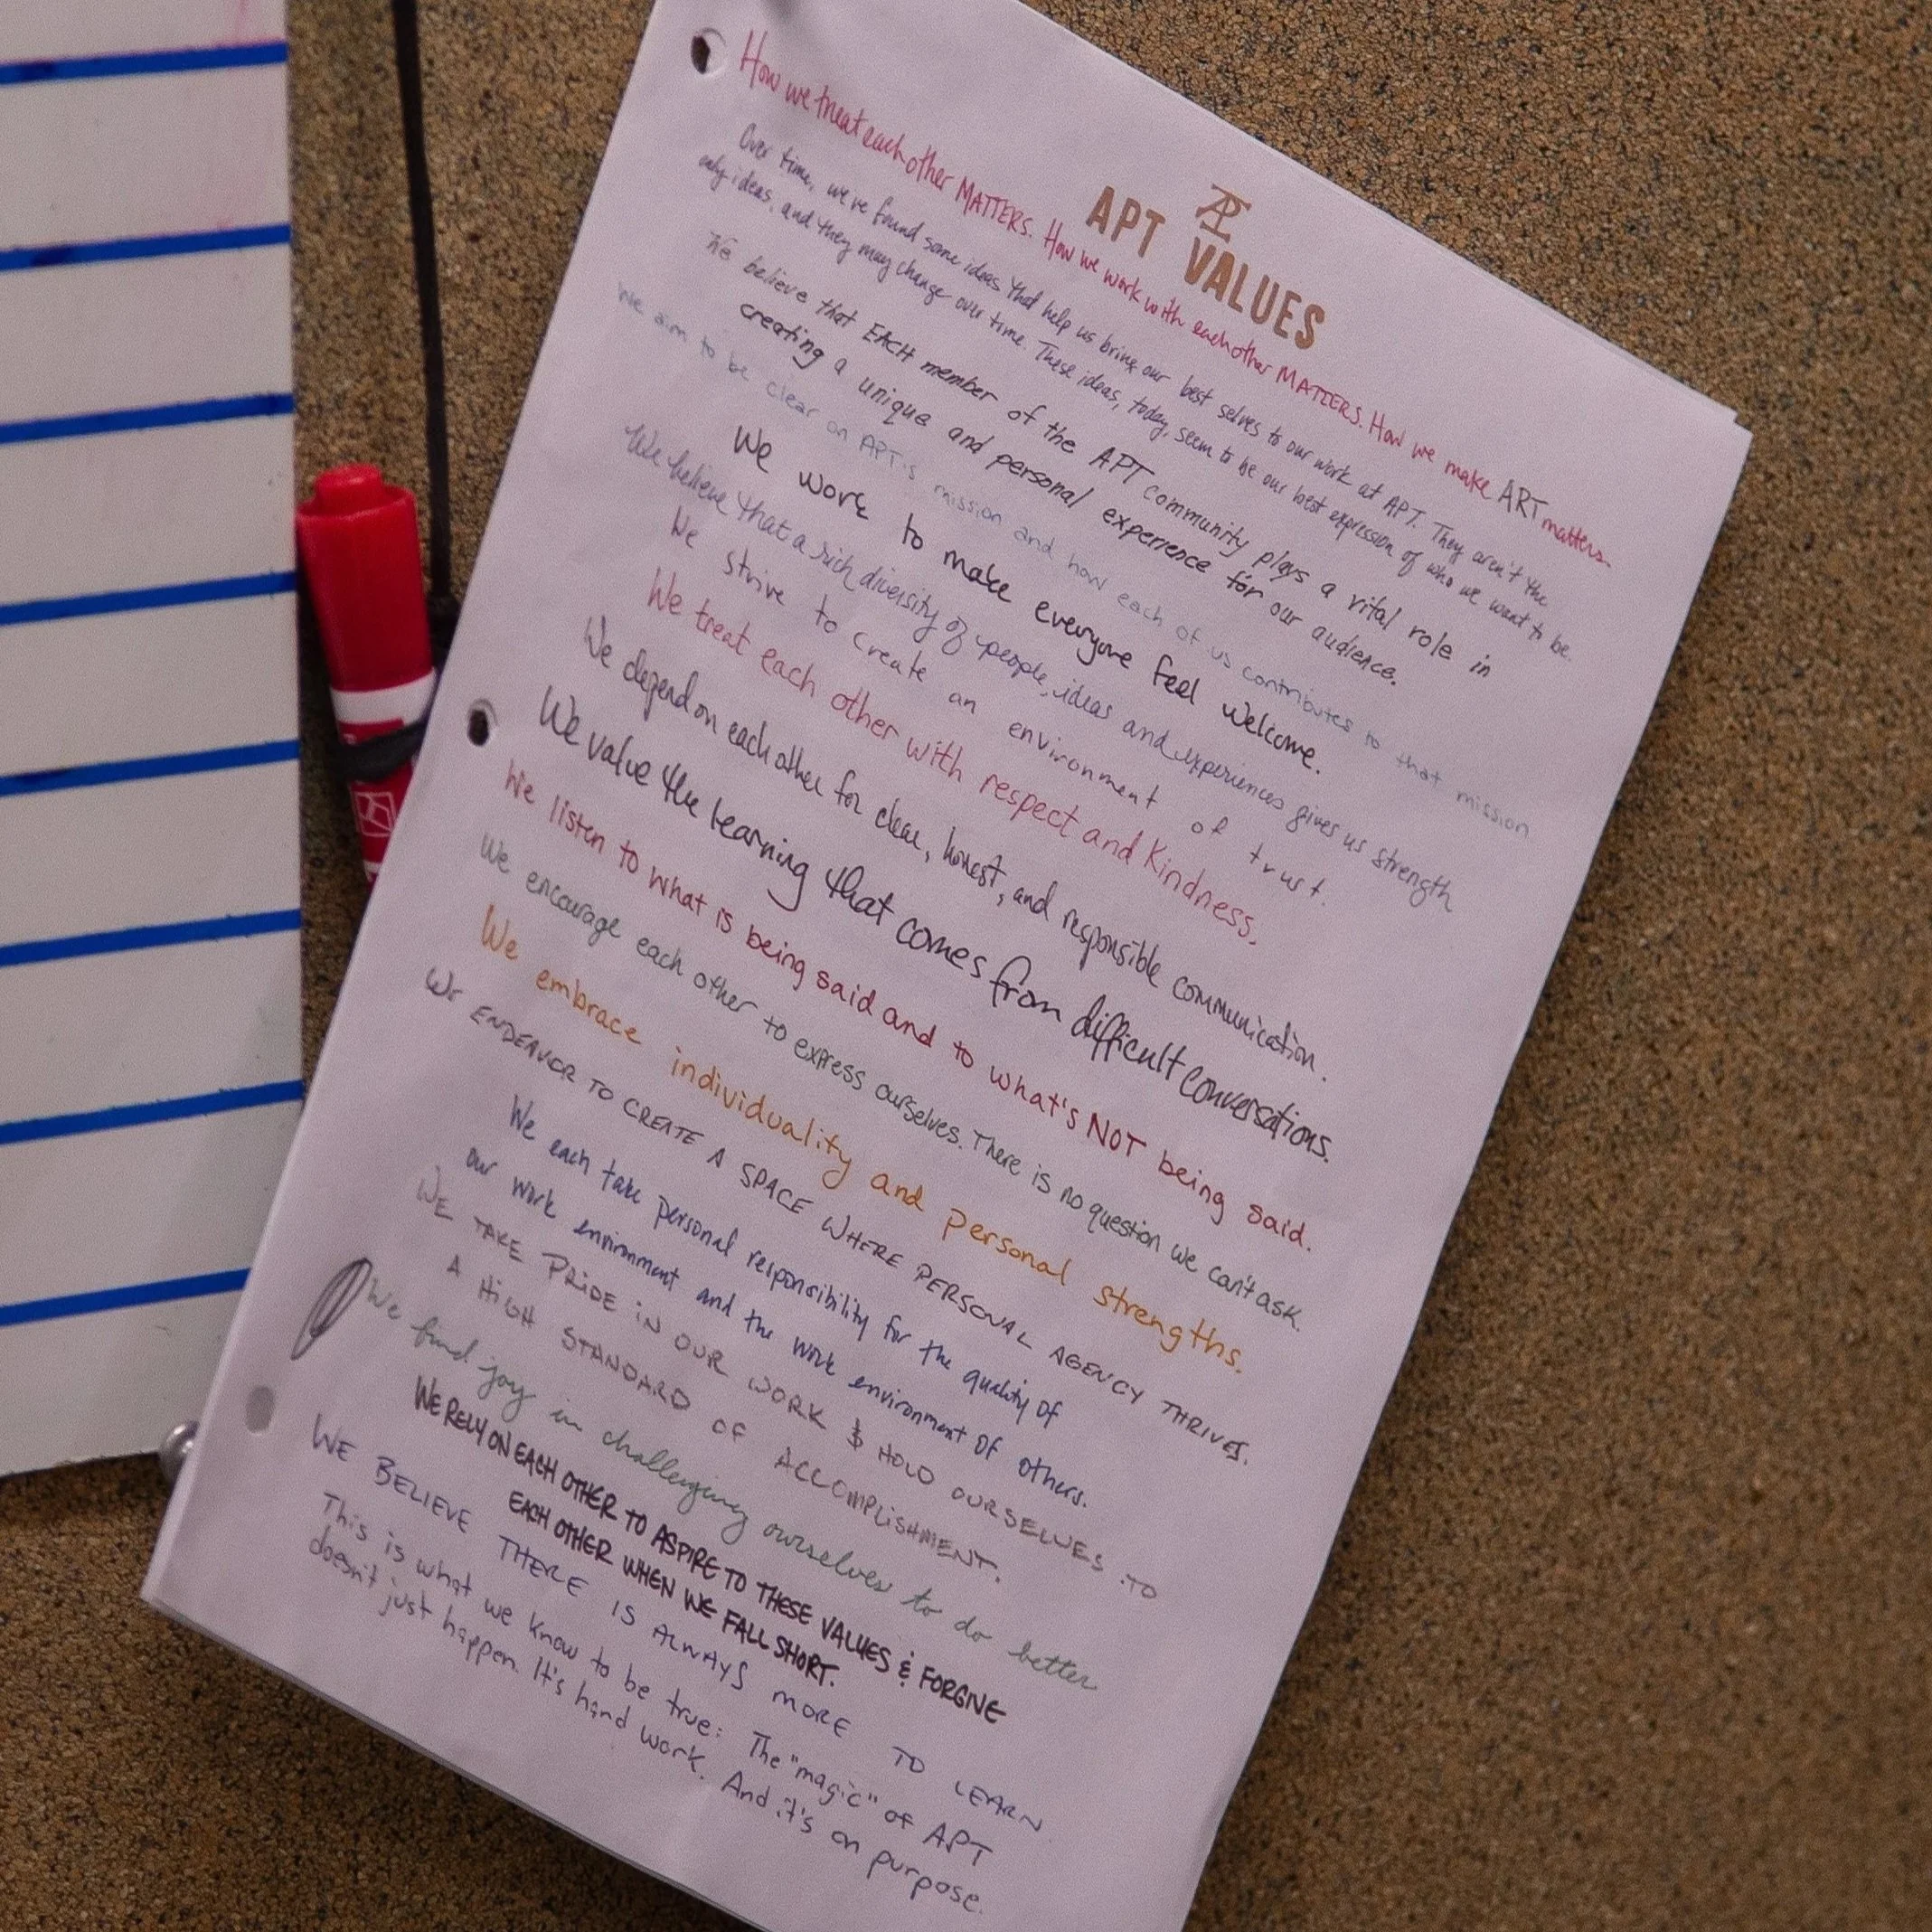 APT
APT VALUES
How we treat each other MATTERS. How we work with each other MATTERS. How we make ART matters.
Over time, we've found some ideas that help us bring our best selves to our work at APT. They aren't the
only ideas, and they may change over time. These ideas, today, seem to be our best expression of who we want to be.
We believe that EACH member of the APT community plays a vital role in
creating a unique and personal experience for our audience.
We aim to be clear on APT's mission and how each of us contributes to that mission
We work to make everyone feel welcome.
We believe that a rich diversity of people, ideas and experiences gives us strength
We strive to create an environment of trust.
We treat each other with respect and kindness.
We depend on each other for clear, honest, and responsible communication.
We value the learning that comes from difficult conversations.
We listen to what is being said and to what's NOT being said.
We encourage each other to express ourselves. There is no question we can't ask.
We embrace individuality and personal strengths.
WE ENDEAVOR TO CREATE A SPACE WHERE PERSONAL AGENCY THRIVES.
We each take personal responsibility for the quality of
our work environment and the work environment of others.
WE TAKE PRIDE IN OUR WORK & HOLD OURSELVES TO
A HIGH STANDARD OF ACCOMPLISHMENT.
We find joy in challenging ourselves to do better
WE RELY ON EACH OTHER TO ASPIRE TO THESE VALUES & FORGIVE
EACH OTHER WHEN WE FALL SHORT.
WE BELIEVE THERE IS ALWAYS MORE TO LEARN
This is what we know to be true: The "magic" of APT
doesn't just happen. It's hard work. And it's on purpose.